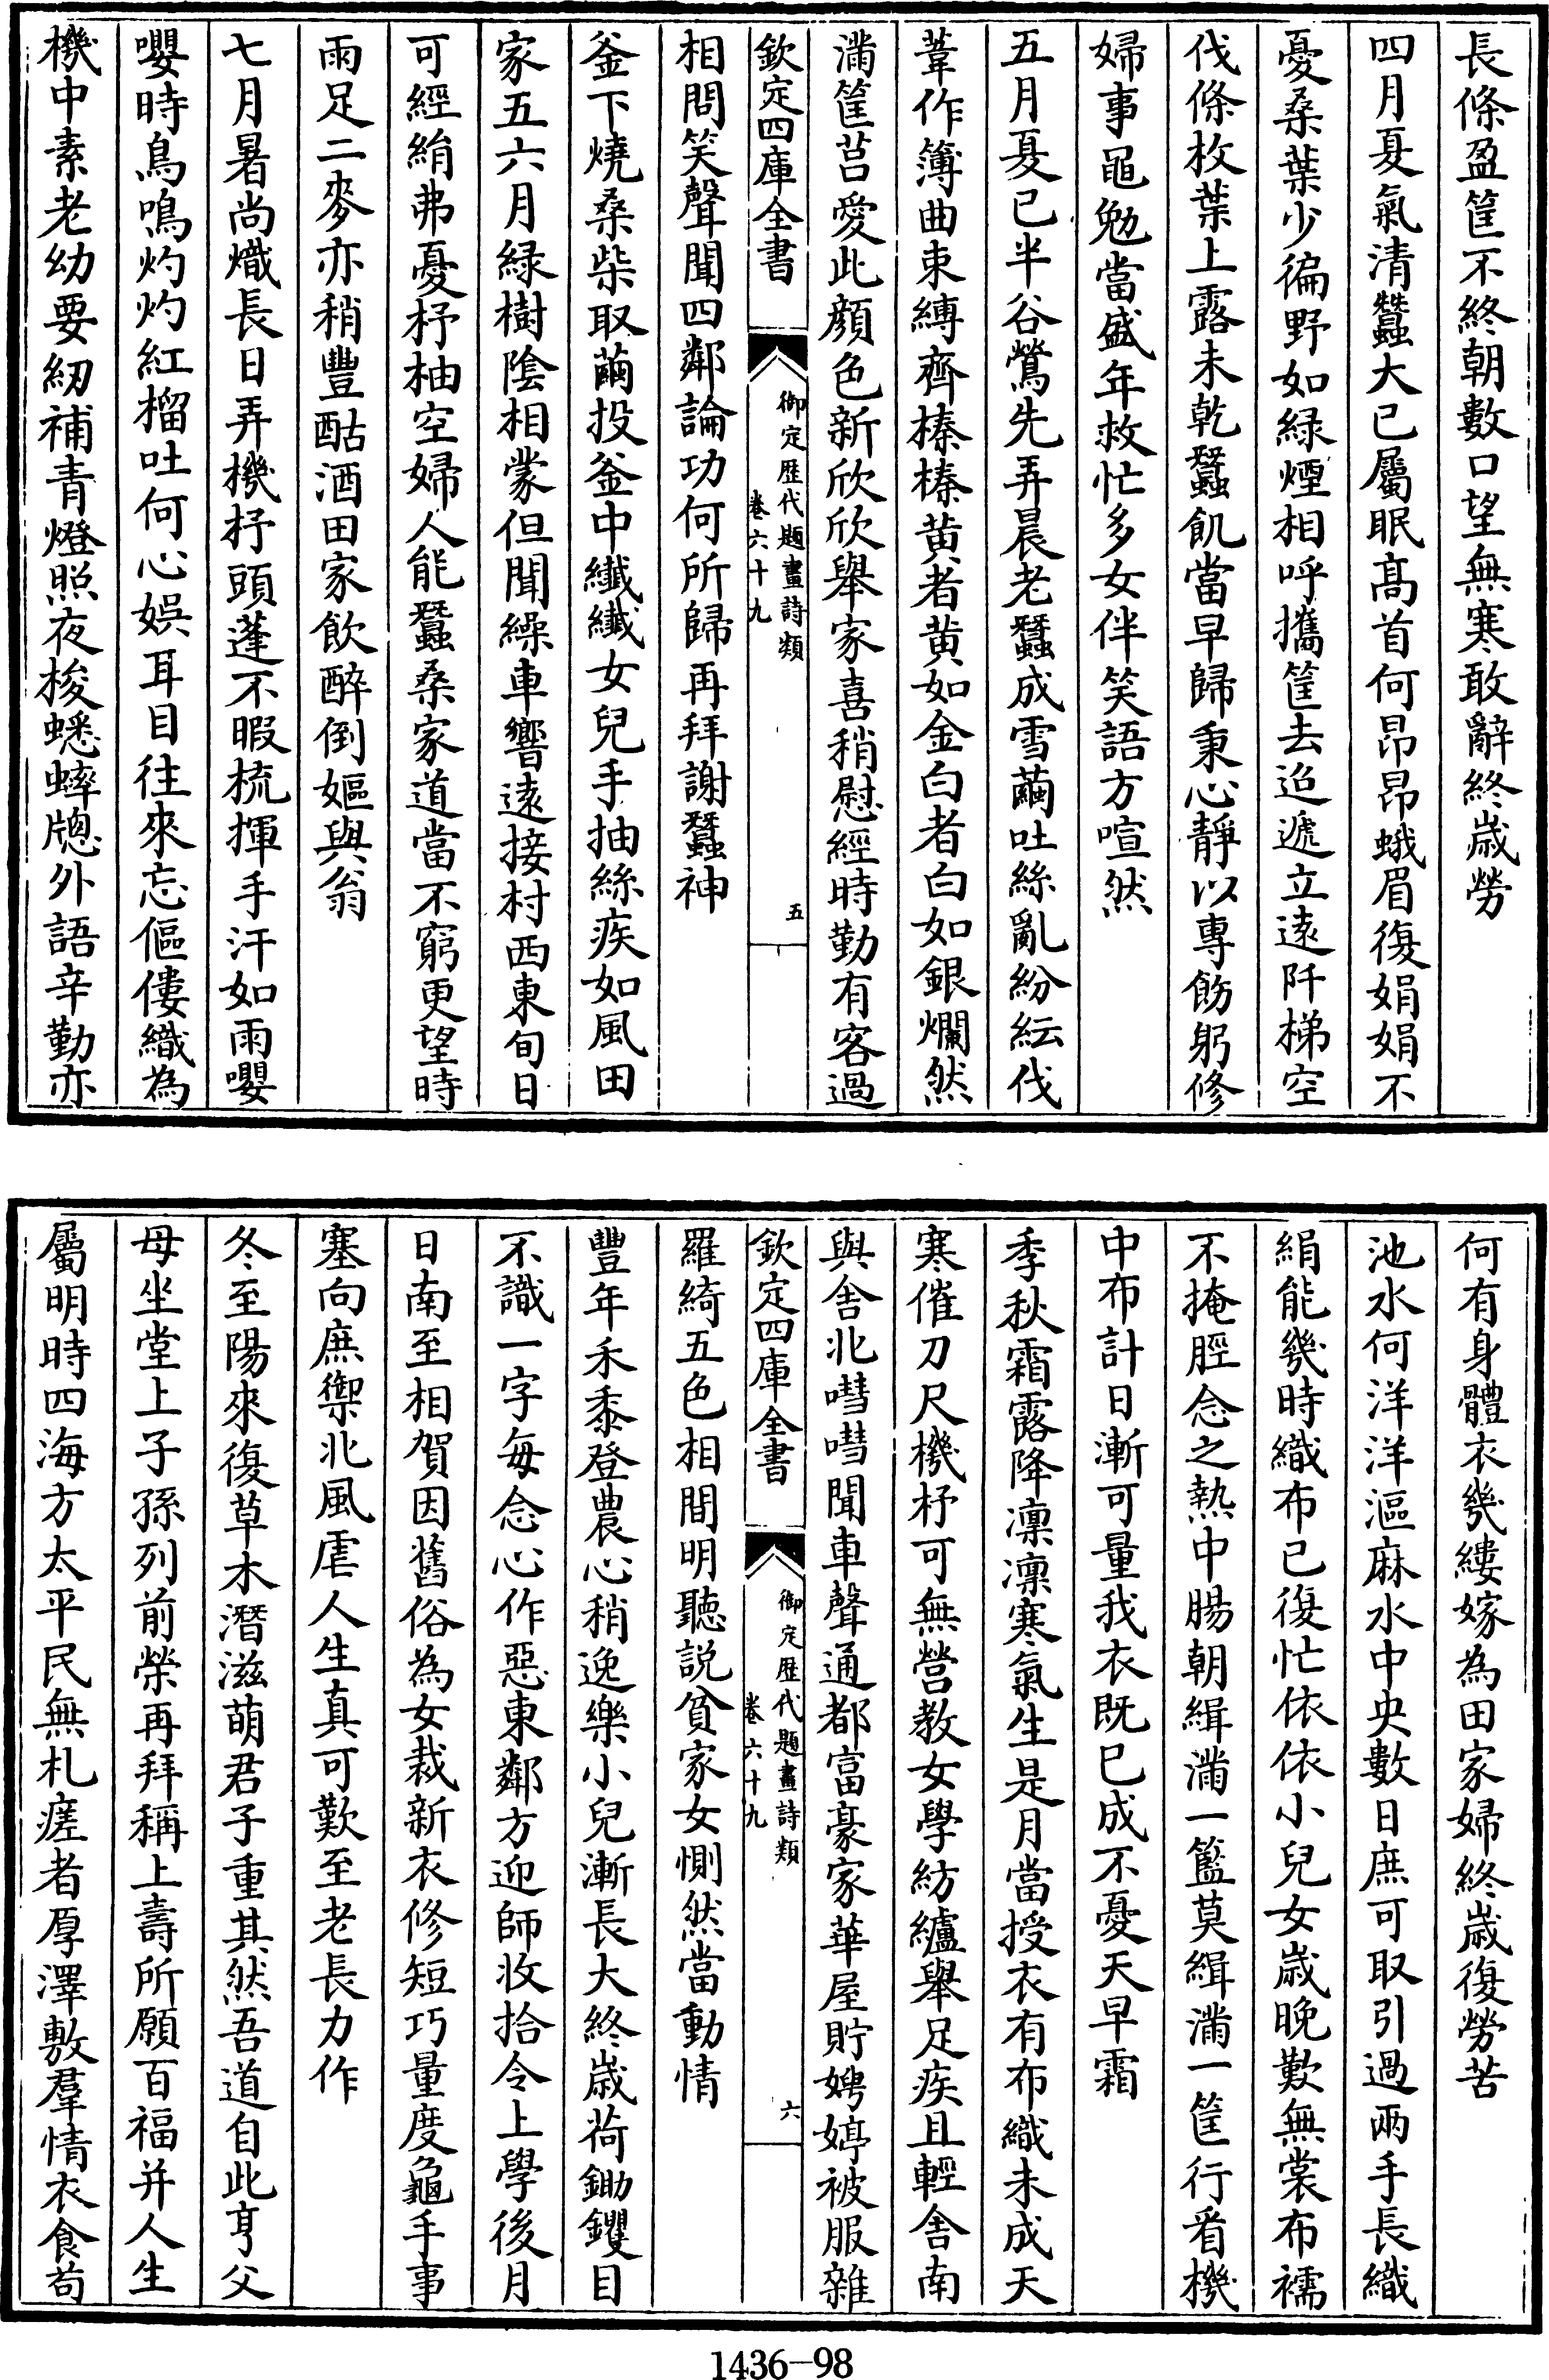 長條盈筐不終朝數口望無寒敢辭終嵗勞
四月夏氣清蠶大已屬眠髙首何昂昂蛾眉復娟娟不
憂桑葉少徧野如緑煙相呼攜筐去迢遞立遠阡梯空
伐條枚葉上露未乾蠶飢當早歸秉心靜以專飭躬修
婦事黽勉當盛年救忙多女伴笑語方喧然
五月夏已半谷鶯先弄晨老蠶成雪繭吐絲亂紛紜伐
葦作簿曲束縛齊榛榛黄者黄如金白者白如銀爛然
滿筐莒愛此顔色新欣欣舉家喜稍慰經時勤有客過
欽定四庫全書
御定歴代題畫詩類
卷六十九
五
相問笑聲聞四鄰論功何所歸再拜謝蠶神
釜下燒桑柴取繭投釜中纖纖女兒手抽絲疾如風田
家五六月緑樹陰相蒙但聞繰車響遠接村西東旬日
可經絹弗憂杼柚空婦人能蠶桑家道當不窮更望時
雨足二麥亦稍豐酤酒田家飲醉倒嫗與翁
七月暑尚熾長日弄機杼頭蓬不暇梳揮手汗如雨嚶
嚶時鳥鳴灼灼紅榴吐何心娛耳目往來忘傴僂織為
機中素老幼要紉補青燈照夜梭蟋蟀牕外語辛勤亦
何有身體衣幾縷嫁為田家婦終嵗復勞苦
池水何洋洋漚麻水中央數日庶可取引過兩手長織
絹能幾時織布已復忙依依小兒女嵗晚歎無裳布襦
不掩脛念之熱中腸朝緝滿一籃莫緝滿一筐行看機
中布計日漸可量我衣既已成不憂天早霜
季秋霜露降凛凛寒氣生是月當授衣有布織未成天
寒催刀尺機杼可無營教女學紡纑舉足疾且輕舍南
與舍北嘒嘒聞車聲通都富豪家華屋貯娉婷被服雜
欽定四庫全書
御定歴代題畫詩類
卷六十九
六
羅綺五色相間明聽説貧家女惻然當動情
豐年禾黍登農心稍逸樂小兒漸長大終嵗荷鋤钁目
不識一字毎念心作惡東鄰方迎師收拾令上學後月
日南至相賀因舊俗為女裁新衣修短巧量度龜手事
塞向庶禦北風虐人生真可歎至老長力作
冬至陽來復草木潛滋萌君子重其然吾道自此亨父
母坐堂上子孫列前榮再拜稱上壽所願百福并人生
屬明時四海方太平民無札瘥者厚澤敷羣情衣食茍
1436-98